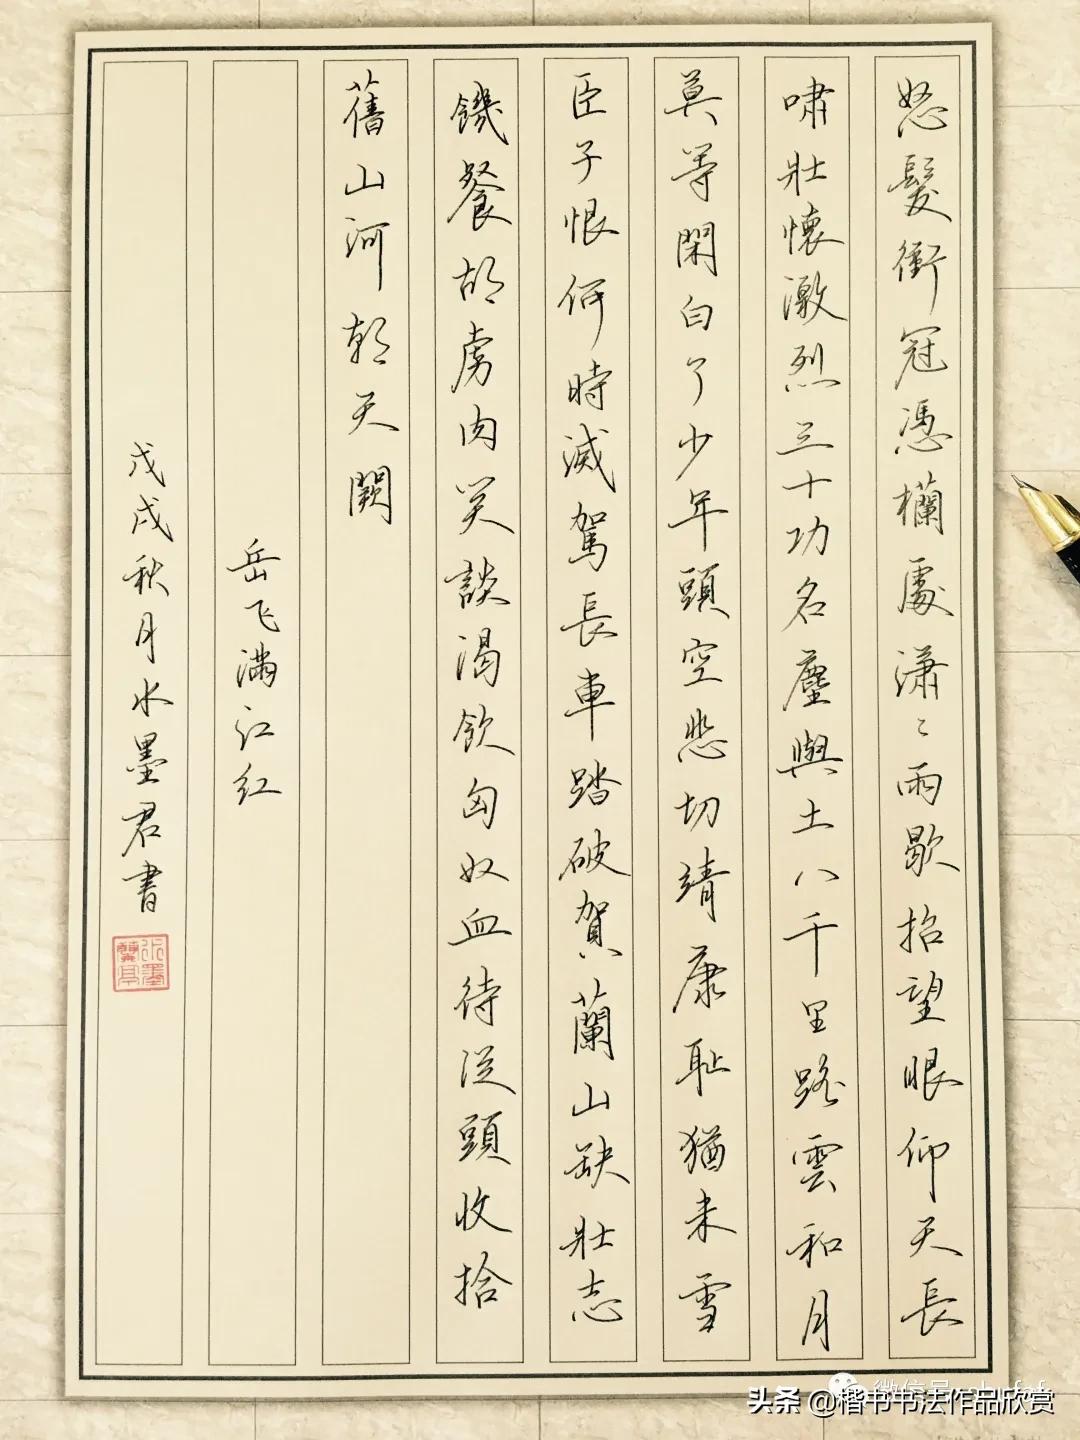 怒髮衝冠憑欄處潇〻雨歇抬望眼仰天長
啸壯懷激烈三十功名塵與土八千里路雲和月
莫等閑白了少年頭空悲切靖康恥猶未雪
臣子恨何時滅駕長車踏破賀蘭山缺壯志
饑餐胡虜肉笑談渴飲匈奴血待從頭收拾
舊山河朝天闕
岳飞满江红
戊戌秋月水墨君書
头条 @楷书书法作品欣赏